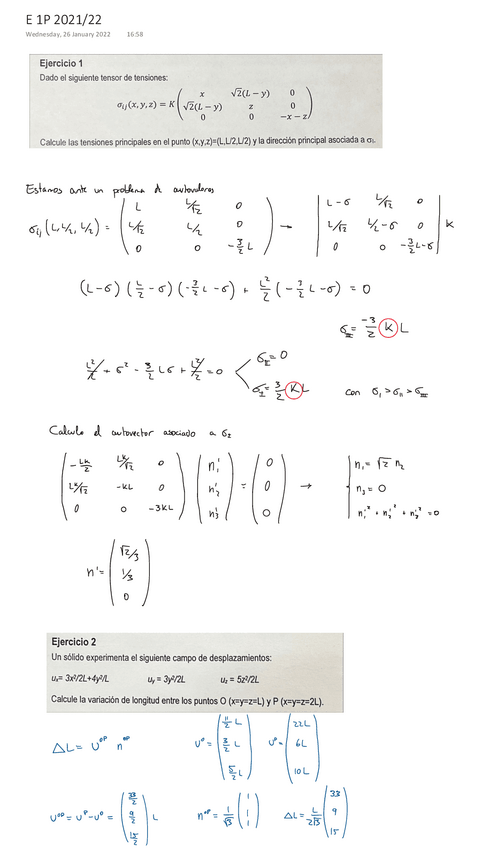 E 1P 2021/22
Wednesday, 26 January 2022 16:58
Ejercicio 1
Dado el siguiente tensor de tensiones:
σij(x, y, z) = K ( x √2(L − y) 0
√2(L − y) z 0
0 0 −x − z )
Calcule las tensiones principales en el punto (x,y,z)=(L,L/2,L/2) y la dirección principal asociada a σI.
Estamos ante un problema de autovalores
σij (L, L/2, L/2) = ( L L/√2 0
L/√2 L/2 0
0 0 -3/2 L ) → | L-σ L/√2 0
L/√2 L/2-σ 0
0 0 -3/2 L-σ | K
(L-σ) (L/2 -σ) (-3/2 L -σ) + L²/2 (-3/2 L -σ) = 0
σIII = -3/2 K L
L²/2 + σ² - 3/2 Lσ + L²/2 = 0
σII = 0
σI = 3/2 K L
con σI > σII > σIII
Calculo el autovector asociado a σI
( -LK/2 LK/√2 0
LK/√2 -KL 0
0 0 -3KL ) ( n'1
n'2
n'3 ) = ( 0
0
0 ) →
n1 = √2 n2
n3 = 0
n1'² + n2'² + n3'² = 0
n' = ( √2/3
1/3
0 )
Ejercicio 2
Un sólido experimenta el siguiente campo de desplazamientos:
ux= 3x²/2L+4y²/L uy = 3y²/2L uz = 5z²/2L
Calcule la variación de longitud entre los puntos O (x=y=z=L) y P (x=y=z=2L).
ΔL = U^OP n^OP
U^O = ( 11/2 L
3/2 L
5/2 L )
U^P = ( 22L
6L
10L )
U^OP = U^P - U^O = ( 33/2
9/2
15/2 ) L
n^OP = 1/√3 ( 1
1
1 )
ΔL = L/2√3 ( 33
9
15 )